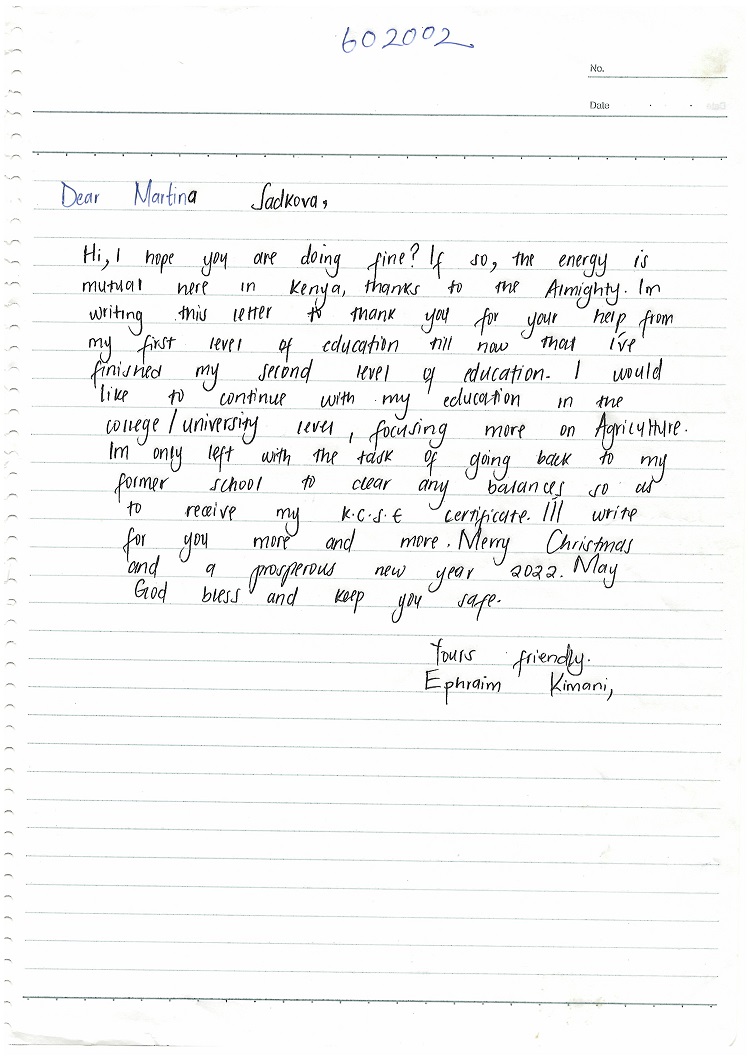 602002
No.
Date . .
Dear Martina Sadkova,
Hi, I hope you are doing fine? If so, the energy is
mutual here in Kenya, thanks to the Almighty. Im
writing this letter to thank you for your help from
my first level of education till now that i've
finished my second level of education. I would
like to continue with my education in the
college/university level, focusing more on Agriculture.
Im only left with the task of going back to my
former school to clear any balances so as
to receive my K.C.S.E certificate. I'll write
for you more and more. Merry Christmas
and a prosperous new year 2022. May
God bless and keep you safe.
Yours friendly.
Ephraim Kimani,